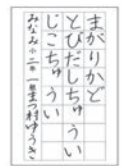 まがりかど
とびだしちゅうい
じこちゅうい
みなみ小 二年 一組 まつ村ゆうき